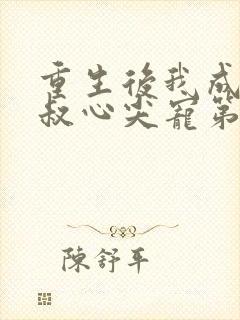 重生後我成
叔心尖寵第
陳舒平